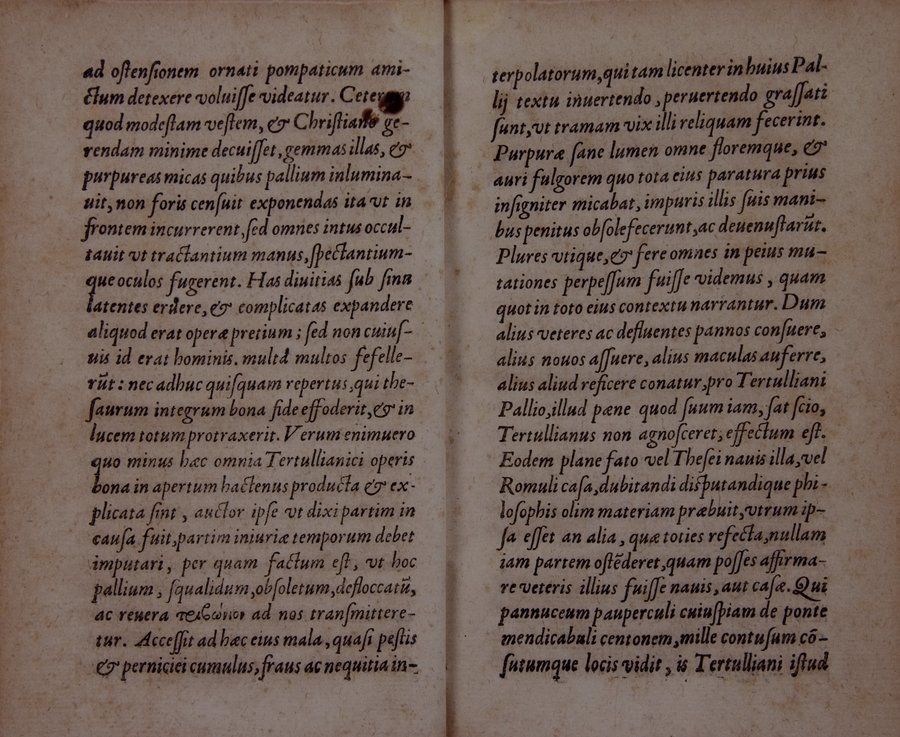 ad ostensionem ornati pompaticum ami-
ctum detexere voluisse videatur. Ceterum
quod modestam vestem, & Christiano ge-
rendam minime decuisset, gemmas illas, &
purpureas micas quibus pallium inlumina-
uit, non foris censuit exponendas ita vt in
frontem incurrerent, sed omnes intus occul-
tauit vt tractantium manus, spectantium-
que oculos fugerent. Has diuitias sub sinu
latentes eruere, & complicatas expandere
aliquod erat operæ pretium; sed non cuius-
uis id erat hominis. multa multos fefelle-
rūt: nec adhuc quisquam repertus, qui the-
saurum integrum bona fide effoderit, & in
lucem totum protraxerit. Verum enimuero
quo minus hæc omnia Tertullianici operis
bona in apertum hactenus producta & ex-
plicata sint, auctor ipse vt dixi partim in
causa fuit, partim iniuriæ temporum debet
imputari, per quam factum est, vt hoc
pallium, squalidum, obsoletum, defloccatū,
ac reuera τριβώνιον ad nos transmittere-
tur. Accessit ad hæc eius mala, quasi pestis
& perniciei cumulus, fraus ac nequitia in-
terpolatorum, qui tam licenter in huius Pal-
lij textu inuertendo, peruertendo grassati
sunt, vt tramam vix illi reliquam fecerint.
Purpuræ sane lumen omne floremque, &
auri fulgorem quo tota eius paratura prius
insigniter micabat, impuris illis suis mani-
bus penitus obsolefecerunt, ac deuenustarūt.
Plures vtique, & fere omnes in peius mu-
tationes perpessum fuisse videmus, quam
quot in toto eius contextu narrantur. Dum
alius veteres ac defluentes pannos consuere,
alius nouos assuere, alius maculas auferre,
alius aliud reficere conatur, pro Tertulliani
Pallio, illud pæne quod suum iam, sat scio,
Tertullianus non agnosceret, effectum est.
Eodem plane fato vel Thesei nauis illa, vel
Romuli casa, dubitandi disputandique phi-
losophis olim materiam præbuit, vtrum ip-
sa esset an alia, quæ toties refecta, nullam
iam partem ostēderet, quam posses affirma-
re veteris illius fuisse nauis, aut casæ. Qui
pannuceum pauperculi cuiuspiam de ponte
mendicabuli centonem, mille contusum cō-
sutumque locis vidit, is Tertulliani istud